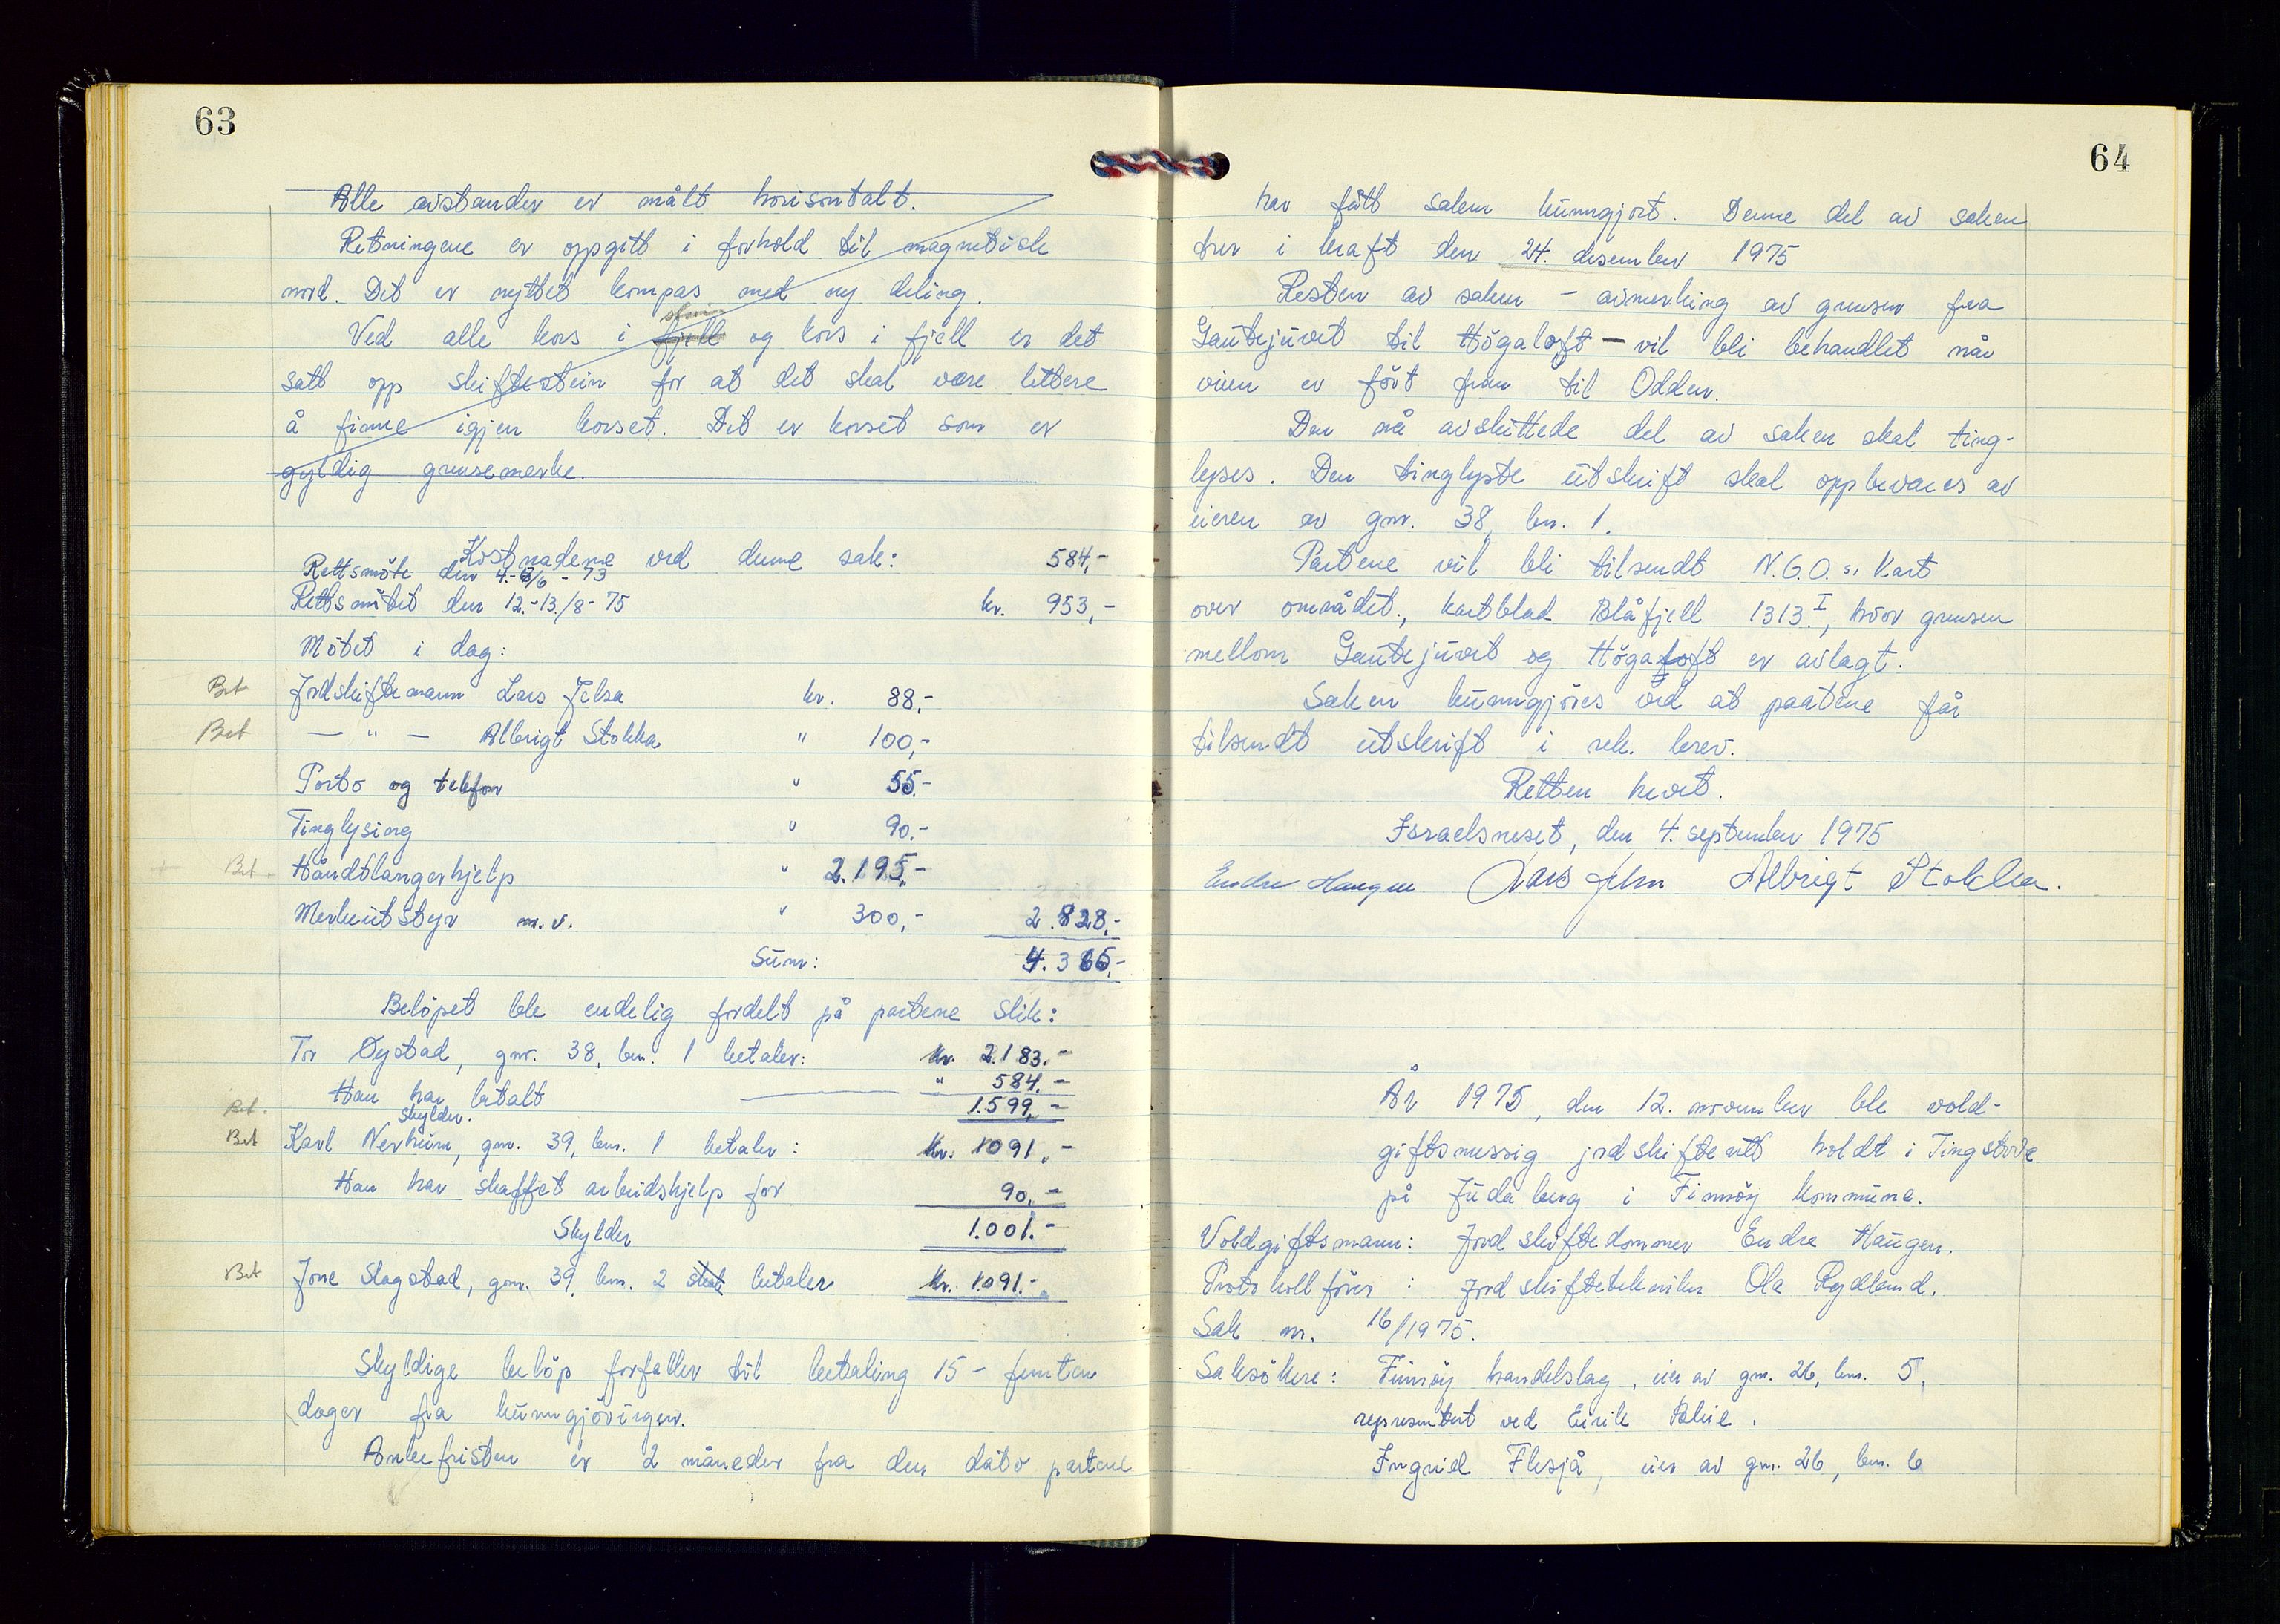 63
Alle avstander er målt horisontalt.
Retningene er oppgitt i forhold til magnetisk
nord. Det er nyttet kompas med ny deling.
stein
Ved alle kors i fjell og kors i fjell er det
satt opp skiftestein for at det skal være lettere
å finne igjen korset. Det er korset som er
gyldig grensemerke.
Kostnadene ved denne sak:
Rettsmöte den 4.-6/6 - 73 584,-
Rettsmötet den 12.-13./8-75 kr. 953,-
Mötet i dag:
Bet Jordskiftemann Lars Jelsa kr. 88,-
Bet — " — Albrigt Stokka " 100,-
Porto og telefon " 55.-
Tinglysing " 90.-
+ Bet. Håndtlangerhjelp " 2.195,-
Merkeutstyr m.v. " 300,- 2.828,-
Sum: 4.365,-
Belöpet ble endelig fordelt på partene slik:
Tor Øystad, gnr. 38, bnr. 1 betaler: kr. 2.183.-
Han har betalt " 584.-
Bet. skylder. 1.599,-
Bet Karl Nerheim, gnr. 39, bnr. 1 betaler: kr. 1091.-
Han har skaffet arbeidshjelp for 90,-
Skylder 1.001.-
Bet Jone Slogstad, gnr. 39, bnr. 2 skal betaler kr. 1.091.-
Skyldige belöp forfaller til betaling 15 - femten
dager fra kunngjöringen.
Ankefristen er 2 måneder fra den dato partene
64
har fått saken kunngjort. Denne del av saken
trer i kraft den 24. desember 1975
Resten av saken - avmerking av grensen fra
Gautejuvet til Högaloft - vil bli behandlet når
veien er fört fram til Odden.
Den nå avsluttede del av saken skal ting-
lyses. Den tinglyste utskrift skal oppbevares av
eieren av gnr. 38, bnr. 1.
Partene vil bli tilsendt N.G.O.s, kart
over området, kartblad Blåfjell 1313.I, hvor grensen
mellom Gautejuvet og Högaloft er avlagt.
Saken kunngjöres ved at partene får
tilsendt utskrift i rek. brev.
Retten hevet.
Israelsneset, den 4. september 1975
Endre Haugen Lars Jelsa Albrigt Stokka.
År 1975, den 12. november ble vold-
giftsmessig jordskifterett holdt i Tingstova
på Judaberg i Finnöy kommune.
Voldgiftsmann: Jordskiftedommer Endre Haugen.
Protokollförer: Jordskiftetekniker Ola Rydland.
Sak nr. 16/1975.
Saksökere: Finnöy handelslag, eier av gnr. 26, bnr. 5,
representert ved Eirik .
Ingrid Flesjå, eier av gnr. 26, bnr. 6